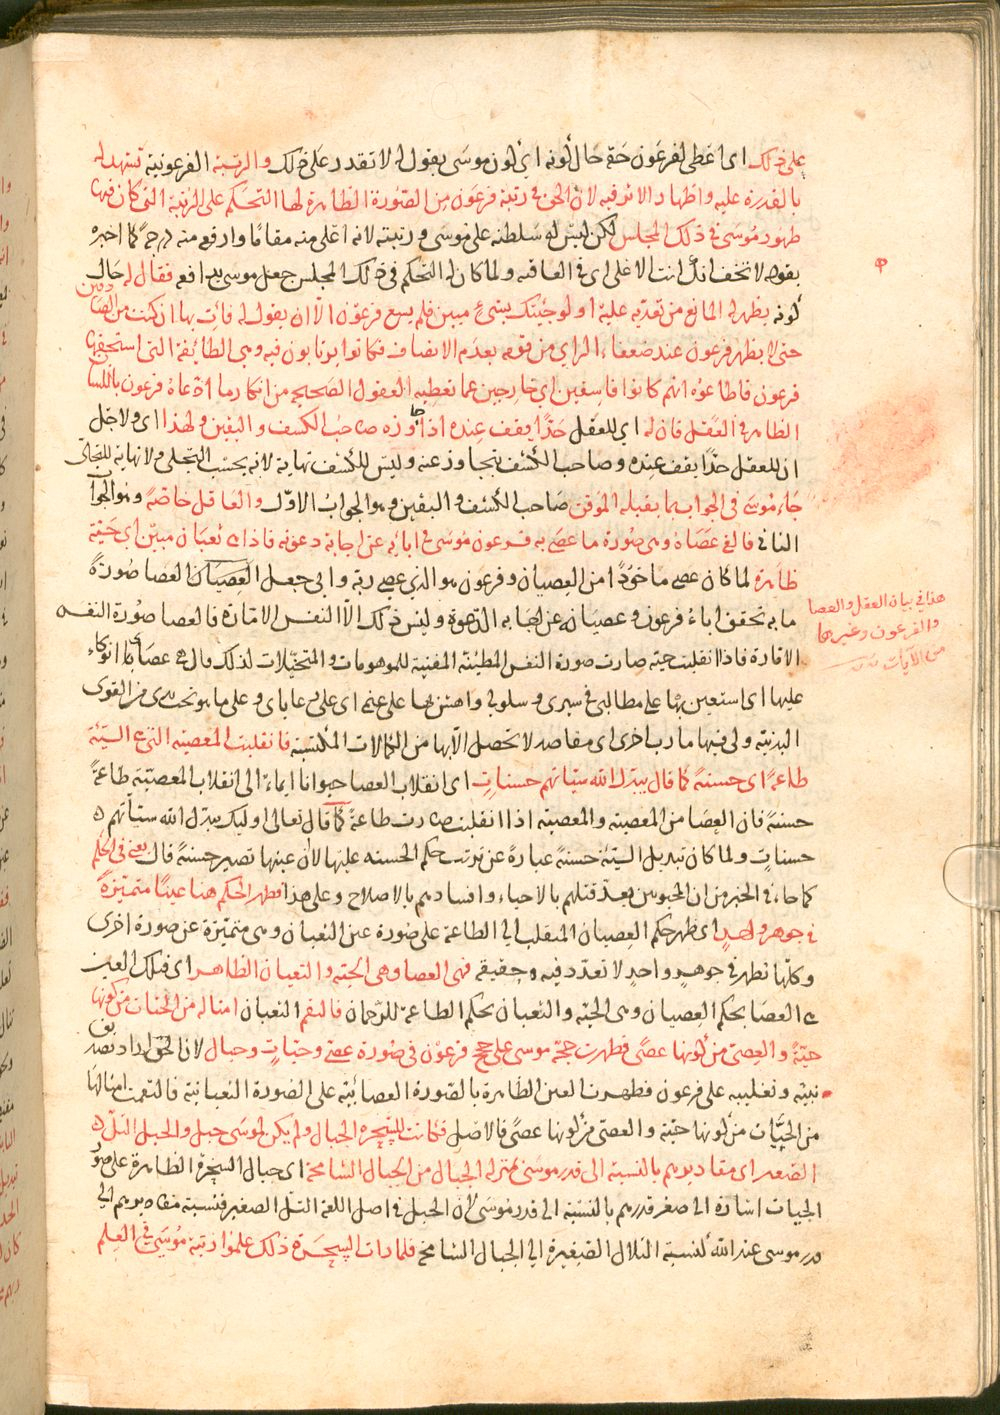 على ذلك اى اعطى لفرعون حقه حال كونه اى كون موسى يقول له لا تقدر على ذلك والرتبة الفرعونية تشهد له
بالقدرة عليه واظهار الاثر فيه لان الحق فى رتبة فرعون من الصورة الظاهرة لها التحكم على الرتبة التى كان فيها
ظهور موسى فى ذلك المجلس لكن ليس له سلطنة على موسى ورتبته لانه اعلى منه مقاما وارفع منه درجة كما اخبره
بقوله لا تخف انك انت الاعلى اى فى العاقبه ولما كان له التحكم فى ذلك المجلس جعل موسى يدافعه فقال له حال
كونه يظهر له المانع من تعديه عليه اولو جئتك بشىء مبين فلم يسع فرعون الا ان يقول له فائت بها ان كنت من الصادقين
حتى لا يظهر فرعون عند ضعفاء الراى من قومه بعدم الانصاف فكانوا يرتابون فيه وهى الطائفة التى استخفها
فرعون فاطاعوه انهم كانوا فاسقين اى خارجين عما تعطيه العقول الصحيحه من انكار ما ادعاه فرعون باللسان
الظاهر فى العقل فان له اى للعقل حدا يقف عنده اذا جاوزه صاحب الكشف واليقين ولهذا اى ولاجل
ان للعقل حدا يقف عنده وصاحب الكشف يتجاوز عنه وليس للكشف نهاية لانه بحسب التجلى ولا نهاية للتجلى
جاء موسى فى الجواب بما يقبله الموقن صاحب الكشف واليقين وهو الجواب الاول والعاقل خاصة وهو الجواب
الثانى فالقى عصاه وهى صورة ما عصى به فرعون موسى فى ابائه عن اجابة دعوته فاذا هى ثعبان مبين اى حية
ظاهرة لما كان عصى ماخوذا من العصيان وفرعون هو الذى عصى ربه وابى جعل العصيان العصا صورة
ما به تحقق اباء فرعون وعصيانه عن اجابه الدعوة وليس ذلك الا النفس الامارة فالعصا صورة النفس
الامارة فاذا انقلبت حيه صارت صورة النفس المطمئنة المفنية للموهومات والمتخيلات لذلك قال هى عصاى اتوكاء
عليها اى استعين بها على مطالبى فى سيرى وسلوكى واهش بها على غنمى اى على رعاياى وعلى ما هو تحت يدى من القوى
البدنية ولى فيها مارب اخرى اى مقاصد لا تحصل الا بها من الكمالات المكتسبة فانقلبت المعصية التى هى السيئة
طاعة اى حسنة كما قال يبدل الله سيئاتهم حسنات اى انقلاب العصا حيوانا ايماء الى انقلاب المعصية طاعة
حسنة فان العصا من المعصية والمعصية اذا انقلبت صارت طاعة كما قال تعالى اوليك يبدل الله سيئاتهم
حسنات ولما كان تبديل السيئة حسنة عبارة عن ترتب حكم الحسنه عليها لا ان عينها تصير حسنة قال يعنى فى الحكم
كما جاء فى الخبر من ان المحبوبين يعد قتلهم بالاحياء وافسادهم بالاصلاح وعلى هذا فظهر الحكم هنا عينا متميزة
فى جوهر واحد اى ظهر حكم العصيان المنقلب الى الطاعة على صورة عين الثعبان وهى متميزة عن صورة اخرى
وكلها تظهر فى جوهر واحد لا تعدد فيه حقيقه فهى العصا وهى الحيه والثعبان الظاهر اى فتلك العين
هى العصا بحكم العصيان وهى الحيه والثعبان بحكم الطاعة للرحمان فالتقم الثعبان امثاله من الحيات من كونها
حية والعصى من كونها عصى فظهرت حجة موسى على حجج فرعون فى صورة عصى وحيات وحبال لان الحق اراد تصديق
نبيه وتغليبه على فرعون فظهرت العين الظاهرة بالصورة العصائية على الصورة الثعبانية فالتقمت امثالها
من الحيات من كونها حية والعصى من كونها عصى فالاصل فكانت للسحرة الحبال ولم يكن لموسى حبل والحبل التل
الصغير اى مقاديرهم بالنسبة الى قدر موسى بمنزلة الحبال من الجبال الشامخة اى حبال السحرة الظاهرة على صور
الحيات اشارة الى صغر قدرهم بالنسبة الى قدر موسى لان الحبل فى اصل اللغة التل الصغير فنسبة مقاديرهم الى
قدر موسى عند الله كنسبة التلال الصغيرة الى الجبال الشامخة فلما رات السحرة ذلك علموا رتبة موسى فى العلم
هذا فى بيان العقل والعصا
والفرعون وغيرها
من الآيات